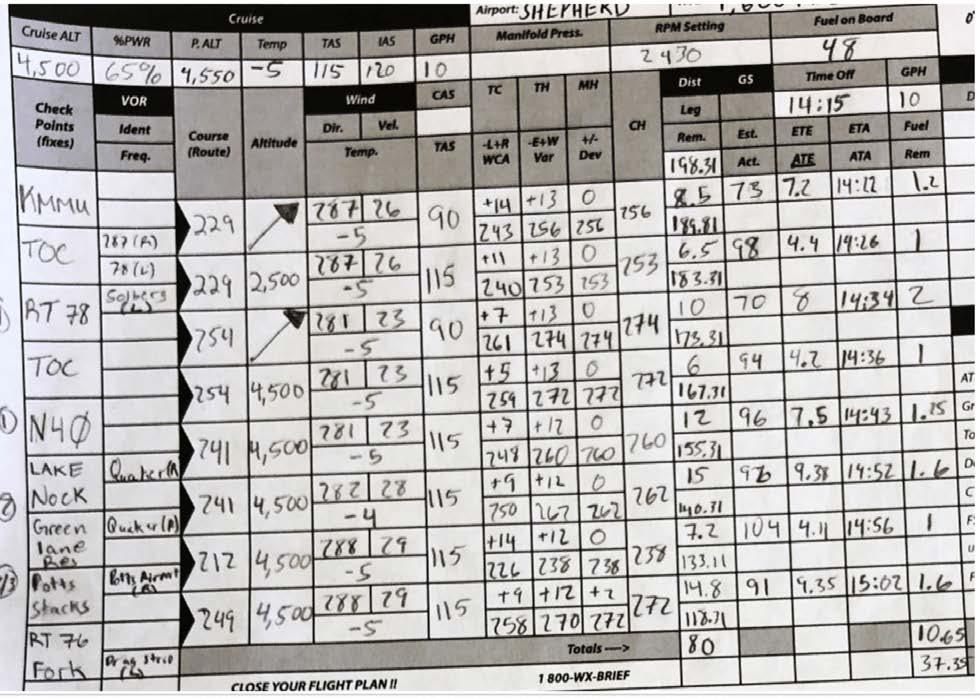 Cruise
Airport: SHEPHERD
Cruise ALT %PWR P. ALT Temp TAS IAS GPH Manifold Press. RPM Setting Fuel on Board
4,500 65% 4,550 -5 115 120 10 2430 48
Check Points (fixes) VOR Ident Freq. Course (Route) Altitude Wind Dir. Vel. Temp. CAS TAS TC -L+R WCA TH -E+W Var MH +/- Dev CH Dist Leg Rem. GS Est. Act. Time Off GPH
14:15 10
ETE ETA Fuel
ATE ATA Rem
198.31
KMMU
229 287 26 90 +14 +13 0 256 8.5 73 7.2 14:22 1.2
-5 243 256 256 189.81
TOC 287 (R)
78 (L) 229 2,500 287 26 115 +11 +13 0 253 6.5 98 4.4 14:26 1
-5 240 253 253 183.31
RT 78 Solberg (L)
254 281 23 90 +7 +13 0 274 10 70 8 14:34 2
-5 261 274 274 173.31
TOC
254 4,500 281 23 115 +5 +13 0 272 6 94 4.2 14:36 1
-5 259 272 272 167.31
N40
241 4,500 281 23 115 +7 +12 0 260 12 96 7.5 14:43 1.25
-5 248 260 260 155.31
LAKE Nock Quaker (R)
241 4,500 282 28 115 +9 +12 0 262 15 9.38 14:52 1.6
-4 250 262 262 140.31
Green lane Res Quaker (R)
212 4,500 288 29 115 +14 +12 0 238 7.2 104 4.11 14:56 1
-5 226 238 238 133.11
Potts Stacks Potts Airport (R)
249 4,500 288 29 115 +9 +12 +2 272 14.8 91 9.35 15:02 1.6
-5 258 270 272 118.31
RT 76 Fork Drag Strip (L)
Totals ----> 80 10.65
37.35
CLOSE YOUR FLIGHT PLAN !! 1 800-WX-BRIEF